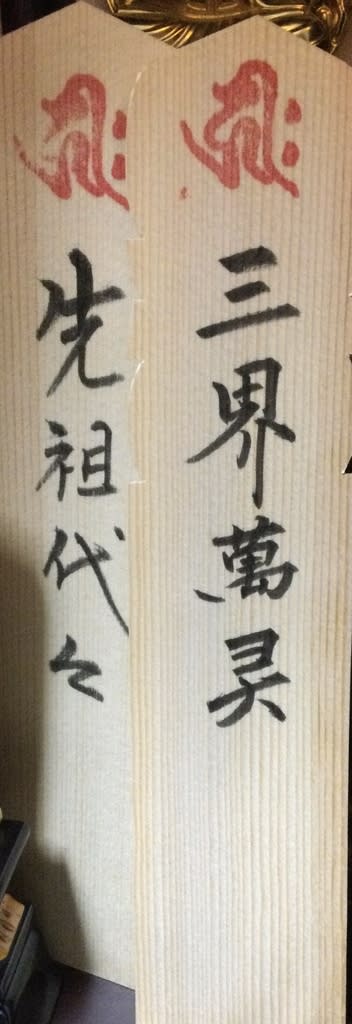 𑖮𑖿𑖨𑖱𑖾
三界萬灵
𑖮𑖿𑖨𑖱𑖾
先祖代々